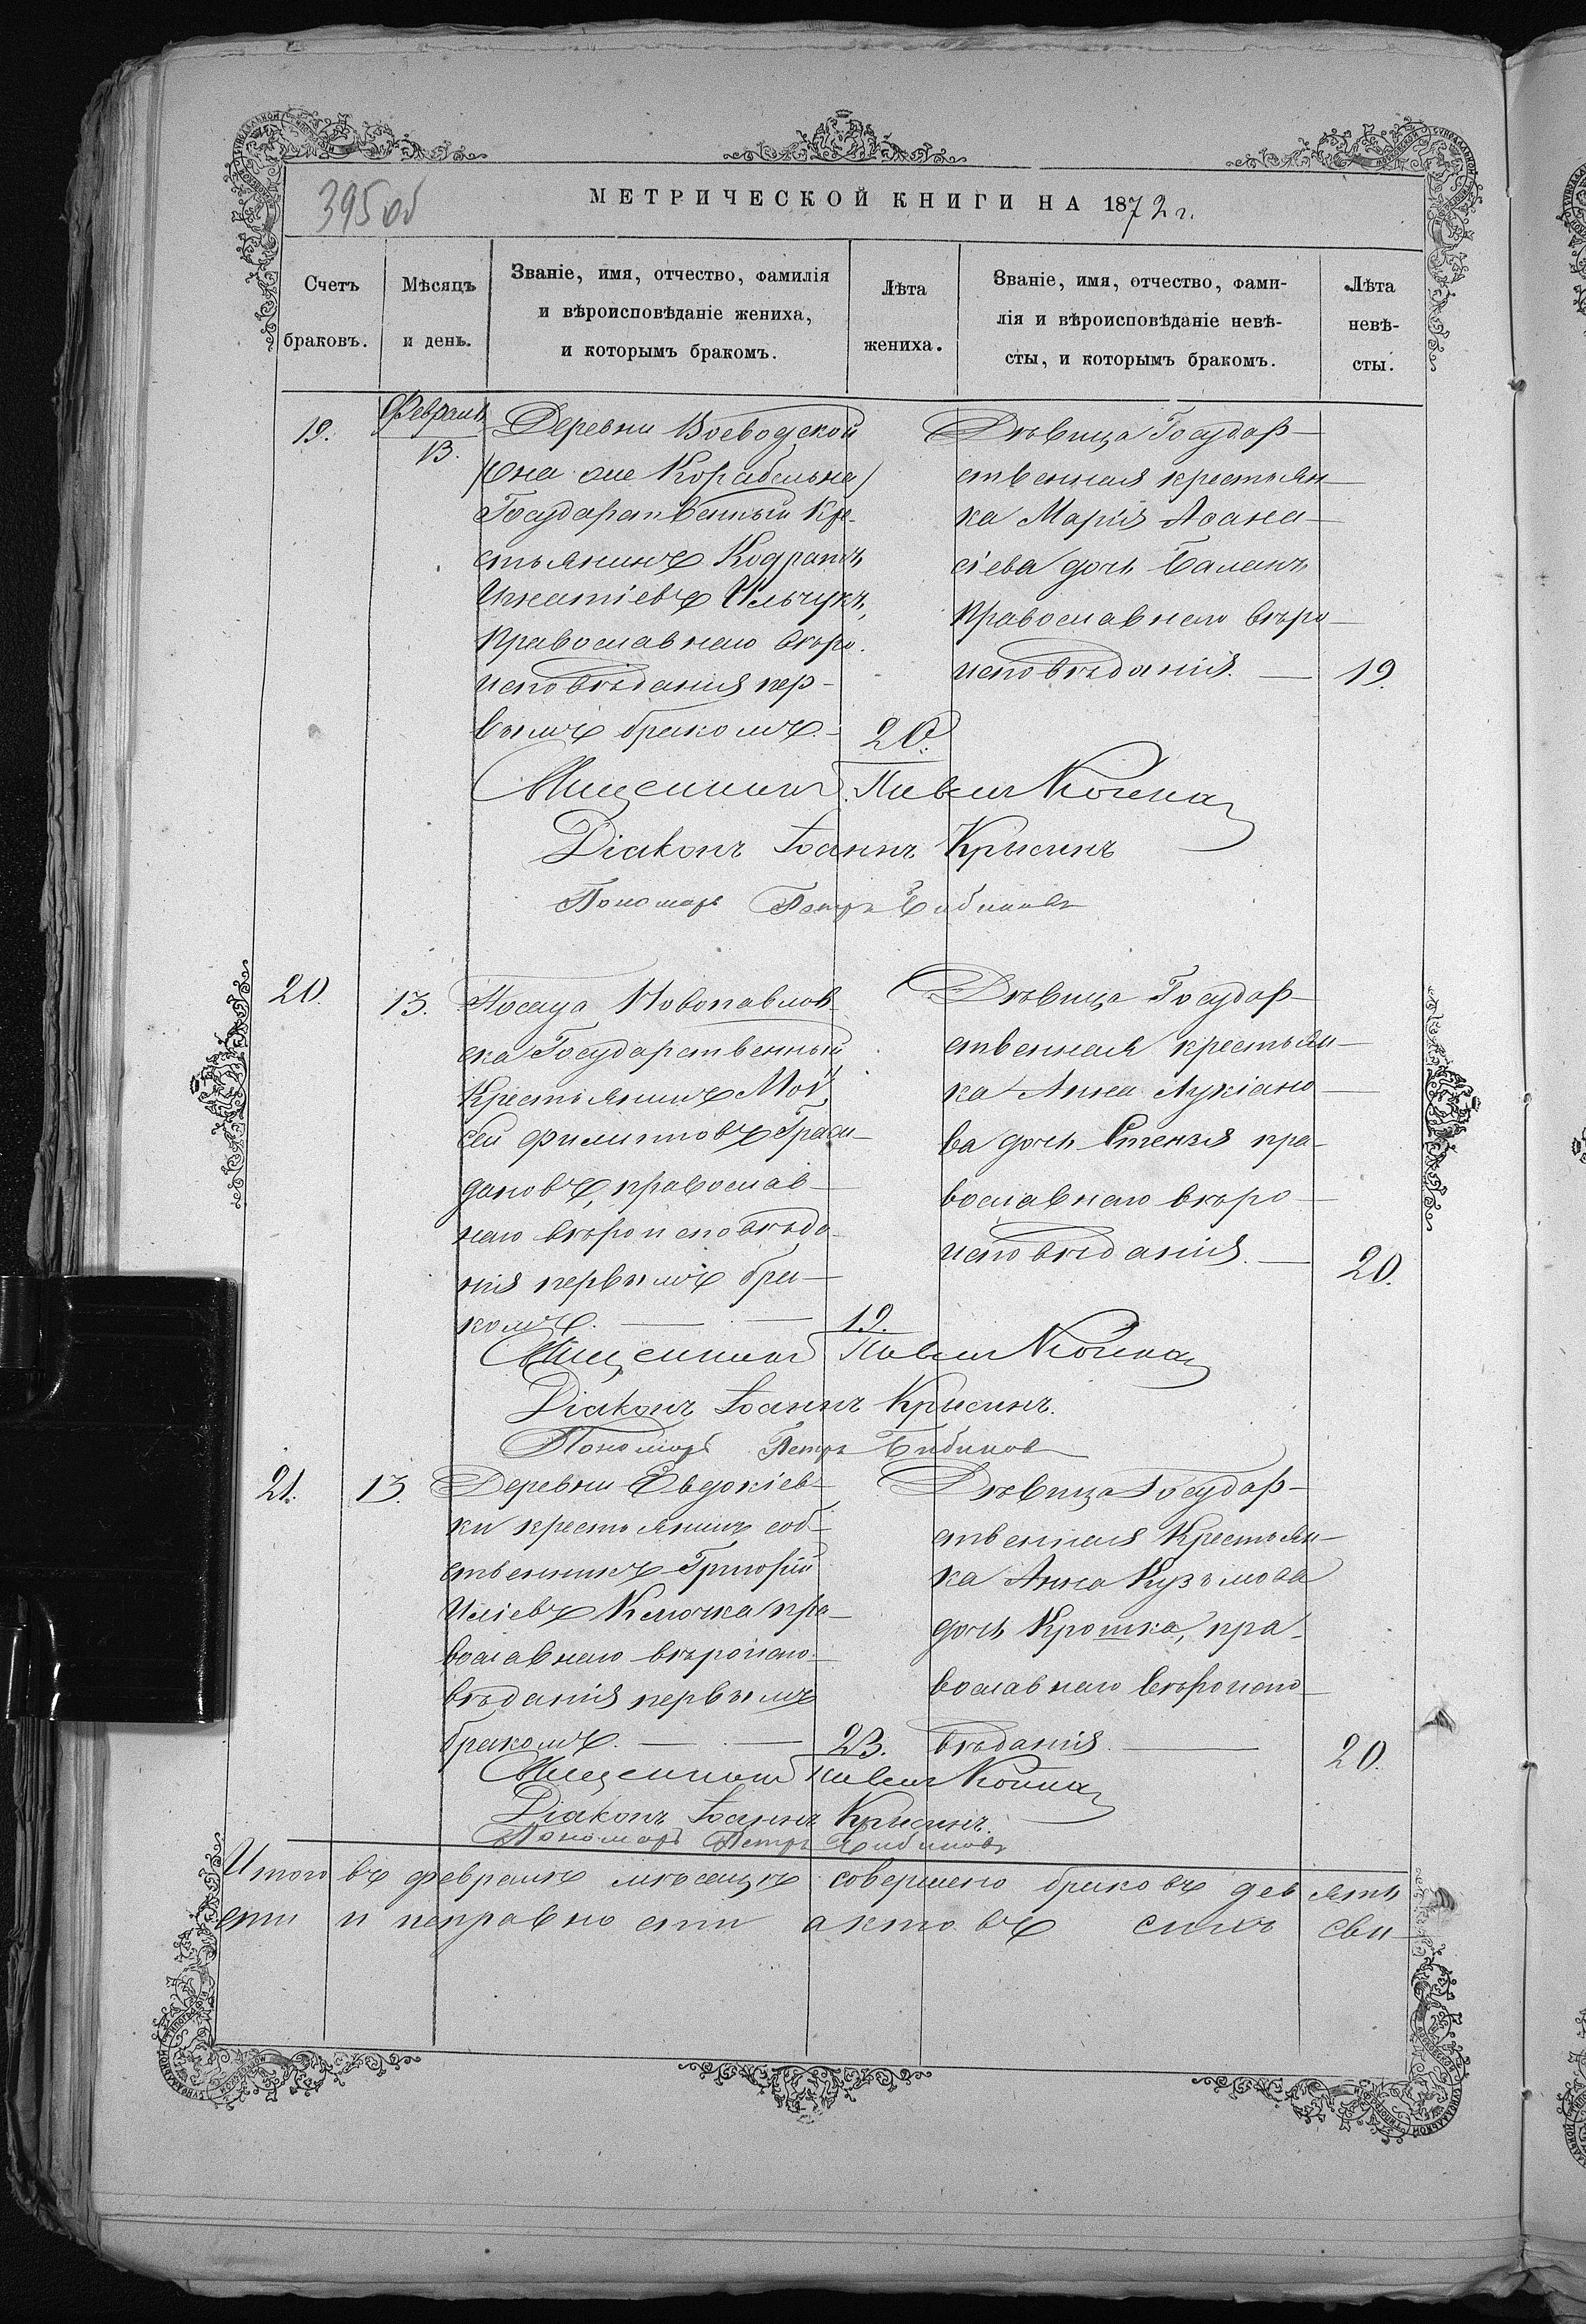 395 об
МЕТРИЧЕСКОЙ КНИГИ НА 1872 г.
Счетъ браковъ.
Мѣсяцъ и день.
Званіе, имя, отчество, фамилія
и вѣроисповѣданіе жениха,
и которымъ бракомъ.
Лѣта
жениха.
Званіе, имя, отчество, фами-
лія и вѣроисповѣданіе невѣ-
сты, и которымъ бракомъ.
Лѣта
невѣ-
сты.
19.
Февраль
13.
Деревни Воеводской
(она же Корабельна)
Государственный Кре-
стьянинъ Кодратъ
Игнатіевъ Ильчукъ,
православнаго вѣро-
исповѣданія пер-
вымъ бракомъ.
20.
Дѣвица Государ-
ственная крестьян-
ка Марія Аѳана-
сіева дочь Баланъ
православнаго вѣро-
исповѣданія.
19.
Священникъ Павелъ
Діаконъ Іоаннъ Крысинъ
Пономарь Петръ Бибиковъ
20.
13.
Посада Новопавлов-
ска Государственный
Крестьянинъ Мой-
сей Филиповъ Граж-
дановъ, православ-
наго вѣроисповѣда-
нія первымъ бра-
комъ.
19.
Дѣвица Государ-
ственная крестьян-
ка Анна Лукіано-
ва дочь Стензя пра-
вославнаго вѣро-
исповѣданія.
20.
Священникъ Павелъ
Діаконъ Іоаннъ Крысинъ.
Пономарь Петръ Бибиковъ
21.
13.
Деревни Евдокіев-
ки крестьянинъ соб-
ственникъ Григорій
Иліевъ Клочка пра-
вославнаго вѣроиспо-
вѣданія первымъ
бракомъ.
23.
Дѣвица Государ-
ственная Крестьян-
ка Анна Кузьмова
дочь Крошка, пра-
вославнаго вѣроиспо-
вѣданія.
20.
Священникъ Павелъ
Діаконъ Іоаннъ Крысинъ.
Пономарь Петръ Бибиковъ
Итого въ февралѣ мѣсяцѣ совершено браковъ девять
сти и исправности актовъ сихъ сви-